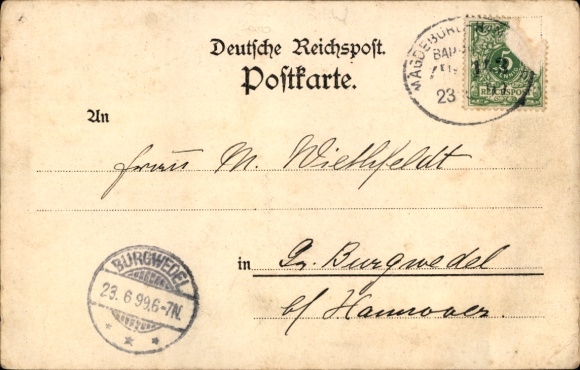 Deutsche Reichspost.
Postkarte.
MAGDEBURG
BAD
23
5
REICHSPOST
An
Frau M. Wiethfeldt
in Gr. Burgwedel
b/ Hannover.
BURGWEDEL
23.6.99.6-7N.
* * *